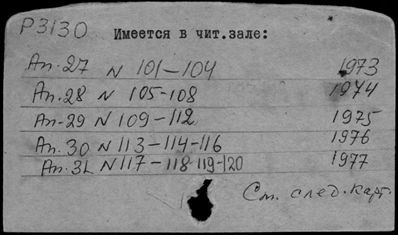 Р3130
Имеется в чит.зале:
Ап.27 N 101-104 1973
Ап.28 N 105-108 1974
Ап-29 N 109-112 1975
Ап.30 N 113-114-116 1976
Ап.31 N 117-118-119-120 1977
См. след.карт.